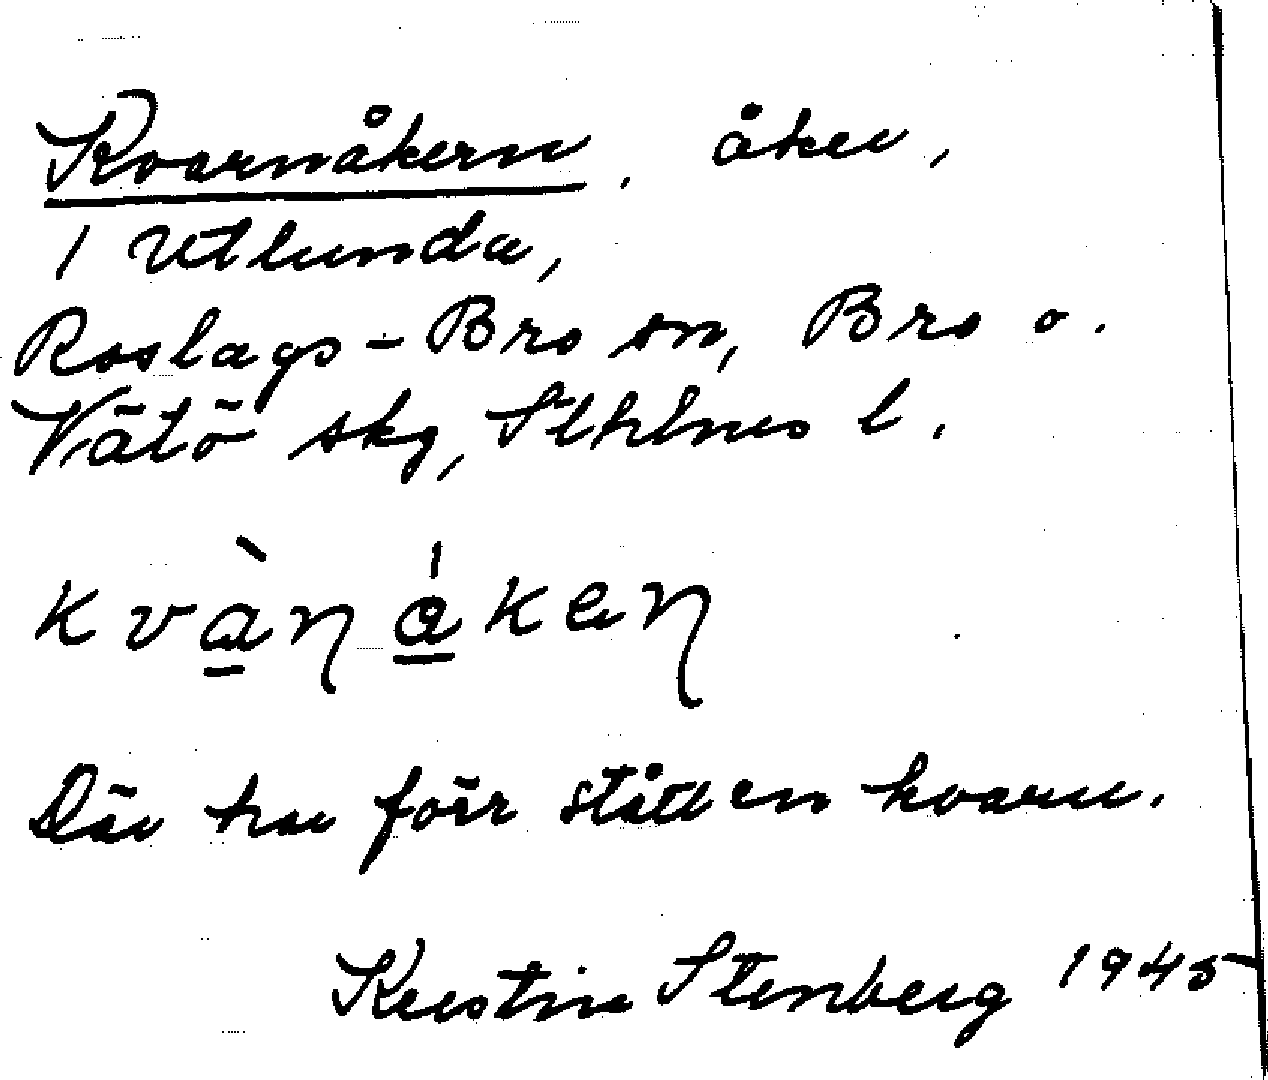 Kvarnåkern, åker,
1 Utlunda,
Roslags-Bro sn, Bro o.
Vätö skg, Sthlms l.
kvàɳåkeɳ
Där har förr stått en kvarn.
Kerstin Stenberg 1945